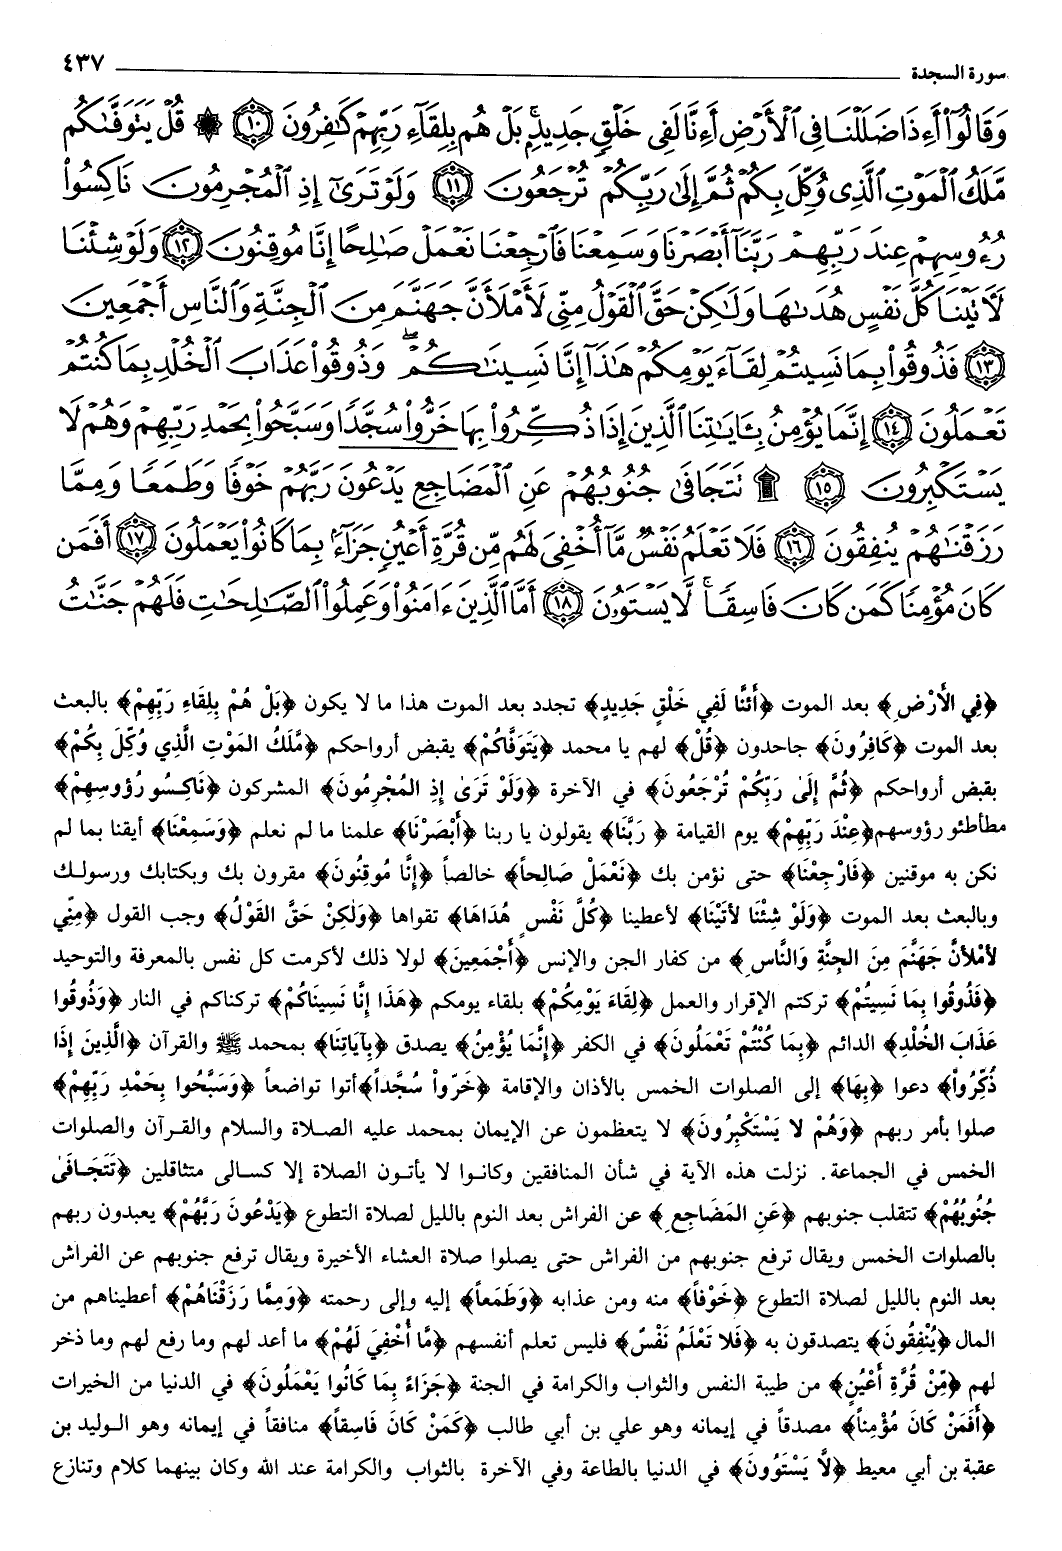 سورة السجدة ٤٣٧
وَقَالُوٓا۟ أَءِذَا ضَلَلْنَا فِى ٱلْأَرْضِ أَءِنَّا لَفِى خَلْقٍ جَدِيدٍۭ ۚ بَلْ هُم بِلِقَآءِ رَبِّهِمْ كَـٰفِرُونَ ١٠ ۞ قُلْ يَتَوَفَّىٰكُم
مَّلَكُ ٱلْمَوْتِ ٱلَّذِى وُكِّلَ بِكُمْ ثُمَّ إِلَىٰ رَبِّكُمْ تُرْجَعُونَ ١١ وَلَوْ تَرَىٰٓ إِذِ ٱلْمُجْرِمُونَ نَاكِسُوا۟
رُءُوسِهِمْ عِندَ رَبِّهِمْ رَبَّنَآ أَبْصَرْنَا وَسَمِعْنَا فَٱرْجِعْنَا نَعْمَلْ صَـٰلِحًا إِنَّا مُوقِنُونَ ١٢ وَلَوْ شِئْنَا
لَـَٔاتَيْنَا كُلَّ نَفْسٍ هُدَىٰهَا وَلَـٰكِنْ حَقَّ ٱلْقَوْلُ مِنِّى لَأَمْلَأَنَّ جَهَنَّمَ مِنَ ٱلْجِنَّةِ وَٱلنَّاسِ أَجْمَعِينَ
١٣ فَذُوقُوا۟ بِمَا نَسِيتُمْ لِقَآءَ يَوْمِكُمْ هَـٰذَآ إِنَّا نَسِينَـٰكُمْ ۖ وَذُوقُوا۟ عَذَابَ ٱلْخُلْدِ بِمَا كُنتُمْ
تَعْمَلُونَ ١٤ إِنَّمَا يُؤْمِنُ بِـَٔايَـٰتِنَا ٱلَّذِينَ إِذَا ذُكِّرُوا۟ بِهَا خَرُّوا۟ سُجَّدًا وَسَبَّحُوا۟ بِحَمْدِ رَبِّهِمْ وَهُمْ لَا
يَسْتَكْبِرُونَ ١٥ ۩ تَتَجَافَىٰ جُنُوبُهُمْ عَنِ ٱلْمَضَاجِعِ يَدْعُونَ رَبَّهُمْ خَوْفًا وَطَمَعًا وَمِمَّا
رَزَقْنَـٰهُمْ يُنفِقُونَ ١٦ فَلَا تَعْلَمُ نَفْسٌ مَّآ أُخْفِىَ لَهُم مِّن قُرَّةِ أَعْيُنٍ جَزَآءًۢ بِمَا كَانُوا۟ يَعْمَلُونَ ١٧ أَفَمَن
كَانَ مُؤْمِنًا كَمَن كَانَ فَاسِقًا ۚ لَّا يَسْتَوُۥنَ ١٨ أَمَّا ٱلَّذِينَ ءَامَنُوا۟ وَعَمِلُوا۟ ٱلصَّـٰلِحَـٰتِ فَلَهُمْ جَنَّـٰتُ
﴿فِي الأَرْضِ﴾ بعد الموت ﴿أَئنَّا لَفِي خَلْقٍ جَدِيدٍ﴾ تجدد بعد الموت هذا ما لا يكون ﴿بَلْ هُمْ بِلِقَاءِ رَبِّهِمْ﴾ بالبعث
بعد الموت ﴿كَافِرُونَ﴾ جاحدون ﴿قُلْ﴾ لهم يا محمد ﴿يَتَوَفَّاكُمْ﴾ يقبض أرواحكم ﴿مَّلَكُ المَوْتِ الَّذِي وُكِّلَ بِكُمْ﴾
بقبض أرواحكم ﴿ثُمَّ إِلَىٰ رَبِّكُمْ تُرْجَعُونَ﴾ في الآخرة ﴿وَلَوْ تَرَىٰ إِذِ المُجْرِمُونَ﴾ المشركون ﴿نَاكِسُو رُؤُوسِهِمْ﴾
مطأطئو رؤوسهم ﴿عِنْدَ رَبِّهِمْ﴾ يوم القيامة ﴿رَبَّنَا﴾ يقولون يا ربنا ﴿أَبْصَرْنَا﴾ علمنا ما لم نعلم ﴿وَسَمِعْنَا﴾ أيقنا بما لم
نكن به موقنين ﴿فَارْجِعْنَا﴾ حتى نؤمن بك ﴿نَعْمَلْ صَالِحاً﴾ خالصاً ﴿إِنَّا مُوقِنُونَ﴾ مقرون بك وبكتابك ورسولك
وبالبعث بعد الموت ﴿وَلَوْ شِئْنَا لأَتَيْنَا﴾ لأعطينا ﴿كُلَّ نَفْسٍ هُدَاهَا﴾ تقواها ﴿وَلٰكِنْ حَقَّ القَوْلُ﴾ وجب القول ﴿مِنِّي
لأَمْلأَنَّ جَهَنَّمَ مِنَ الجِنَّةِ وَالنَّاسِ﴾ من كفار الجن والإنس ﴿أَجْمَعِينَ﴾ لولا ذلك لأكرمت كل نفس بالمعرفة والتوحيد
﴿فَذُوقُوا بِمَا نَسِيتُمْ﴾ تركتم الإقرار والعمل ﴿لِقَاءَ يَوْمِكُمْ﴾ بلقاء يومكم ﴿هَذَا إِنَّا نَسِينَاكُمْ﴾ تركناكم في النار ﴿وَذُوقُوا
عَذَابَ الخُلْدِ﴾ الدائم ﴿بِمَا كُنْتُمْ تَعْمَلُونَ﴾ في الكفر ﴿إِنَّمَا يُؤْمِنُ﴾ يصدق ﴿بِآيَاتِنَا﴾ بمحمد ﷺ والقرآن ﴿الَّذِينَ إِذَا
ذُكِّرُواْ﴾ دعوا ﴿بِهَا﴾ إلى الصلوات الخمس بالأذان والإقامة ﴿خَرّواْ سُجَّداً﴾ أتوا تواضعاً ﴿وَسَبَّحُوا بِحَمْدِ رَبِّهِمْ﴾
صلوا بأمر ربهم ﴿وَهُمْ لا يَسْتَكْبِرُونَ﴾ لا يتعظمون عن الإيمان بمحمد عليه الصلاة والسلام والقرآن والصلوات
الخمس في الجماعة. نزلت هذه الآية في شأن المنافقين وكانوا لا يأتون الصلاة إلا كسالى متثاقلين ﴿تَتَجَافَىٰ
جُنُوبُهُمْ﴾ تتقلب جنوبهم ﴿عَنِ المَضَاجِعِ﴾ عن الفراش بعد النوم بالليل لصلاة التطوع ﴿يَدْعُونَ رَبَّهُمْ﴾ يعبدون ربهم
بالصلوات الخمس ويقال ترفع جنوبهم من الفراش حتى يصلوا صلاة العشاء الأخيرة ويقال ترفع جنوبهم عن الفراش
بعد النوم بالليل لصلاة التطوع ﴿خَوْفاً﴾ منه ومن عذابه ﴿وَطَمَعاً﴾ إليه وإلى رحمته ﴿وَمِمَّا رَزَقْنَاهُمْ﴾ أعطيناهم من
المال ﴿يُنْفِقُونَ﴾ يتصدقون به ﴿فَلا تَعْلَمُ نَفْسٌ﴾ فليس تعلم أنفسهم ﴿مَّا أُخْفِيَ لَهُمْ﴾ ما أعد لهم وما رفع لهم وما ذخر
لهم ﴿مِّنْ قُرَّةِ أَعْيُنٍ﴾ من طيبة النفس والثواب والكرامة في الجنة ﴿جَزَاءً بِمَا كَانُوا يَعْمَلُونَ﴾ في الدنيا من الخيرات
﴿أَفَمَنْ كَانَ مُؤْمِناً﴾ مصدقاً في إيمانه وهو علي بن أبي طالب ﴿كَمَنْ كَانَ فَاسِقاً﴾ منافقاً في إيمانه وهو الوليد بن
عقبة بن أبي معيط ﴿لَّا يَسْتَوُونَ﴾ في الدنيا بالطاعة وفي الآخرة بالثواب والكرامة عند الله وكان بينهما كلام وتنازع